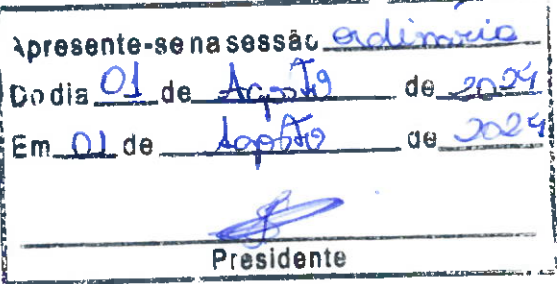 Apresente-se na sessão ordinária
Do dia 01 de Agosto de 2024
Em 01 de Agosto de 2024
Presidente